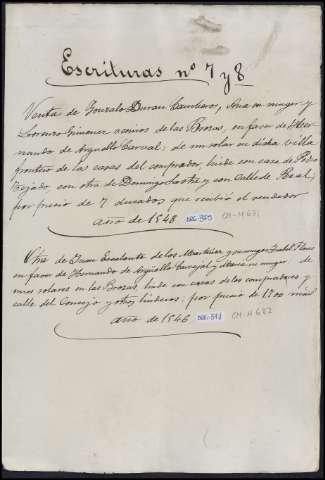 Escrituras nº 7 y 8
Venta de Gonzalo Duran, Ana su muger y
Lorenzo Gimenez vecinos de las Brozas, en favor de Her-
nando de Arguello Carvajal; de un solar en dicha villa
frontero de las casas del comprador, linde con casa de Pedro
Tejado, con otra de Domingo y con Calle de Real,
por precio de 7 ducados que recibió el vendedor
año de 1548
Vta de Juan Escalante de los y su muger Isabel Flores
en favor de Hernando de Arguello Carvajal y su muger de
unos solares en las Brozas, linde con casas de los compradores y
calle del Concejo y otros linderos; por precio de 1700 mrs
año de 1546